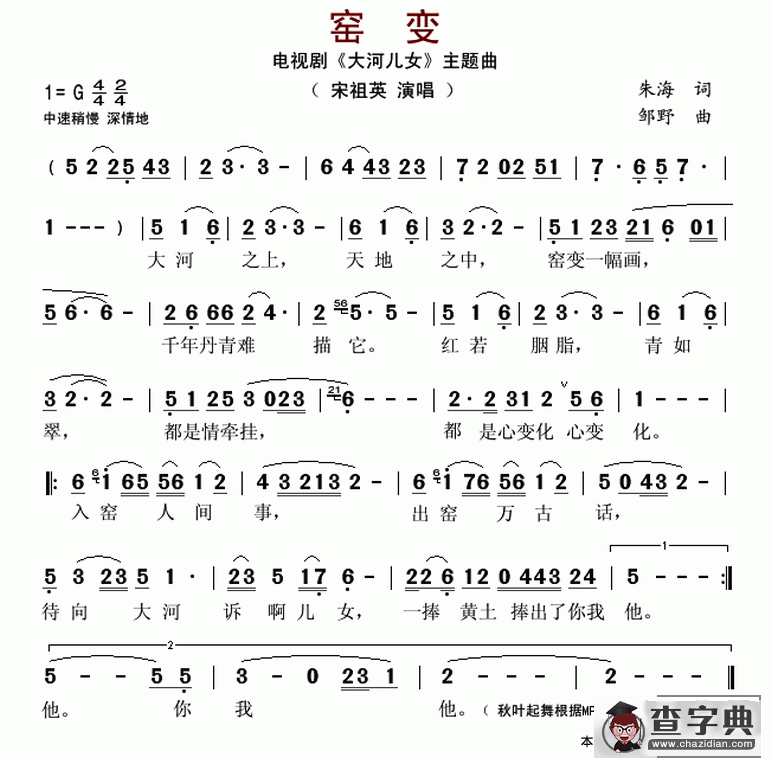 窑 变
电视剧《大河儿女》主题曲
1= G 4/4 2/4 （ 宋祖英 演唱 ） 朱海 词
中速稍慢 深情地 邹野 曲
( 5 2 25 43 | 2 3· 3 - | 6 4 43 23 | 7 2 02 51 | 7· 6 5 7· |
1 - - - ) | 5 1 6 | 2 3· 3 - | 6 1 6 | 3 2· 2 - | 5 1 23 21 6 01 |
大 河 之上， 天 地 之中， 窑变一幅画，
5 6· 6 - | 2 6 66 2 4 | 2 56 5· 5 - | 5 1 6 | 2 3· 3 - | 6 1 6 |
千年丹青难 描 它。 红 若 胭 脂， 青 如
3 2· 2 - | 5 1 25 3 023 | 21 6 - - | 2· 2 31 2 v 5 6 | 1 - - - |
翠， 都是情牵挂， 都 是心变化 心变 化。
‖: 6 6 1 65 56 1 2 | 4 3 213 2 - | 6 6 1 76 56 1 2 | 5 0 43 2 - |
入 窑 人 间 事， 出 窑 万 古 话，
5 3 23 5 1· | 23 5 17 6 - | 22 6 12 0 443 24 | 1 5 - - :‖
待 向 大 河 诉 啊 儿 女， 一捧 黄土 捧出了你我 他。
2
5 - - 5 5 | 3 - 0 23 1 | 2 - - - | 2 - - - ‖
他。 你 我 他。( 秋叶起舞根据MP
本
查字典
www.chazidian.com